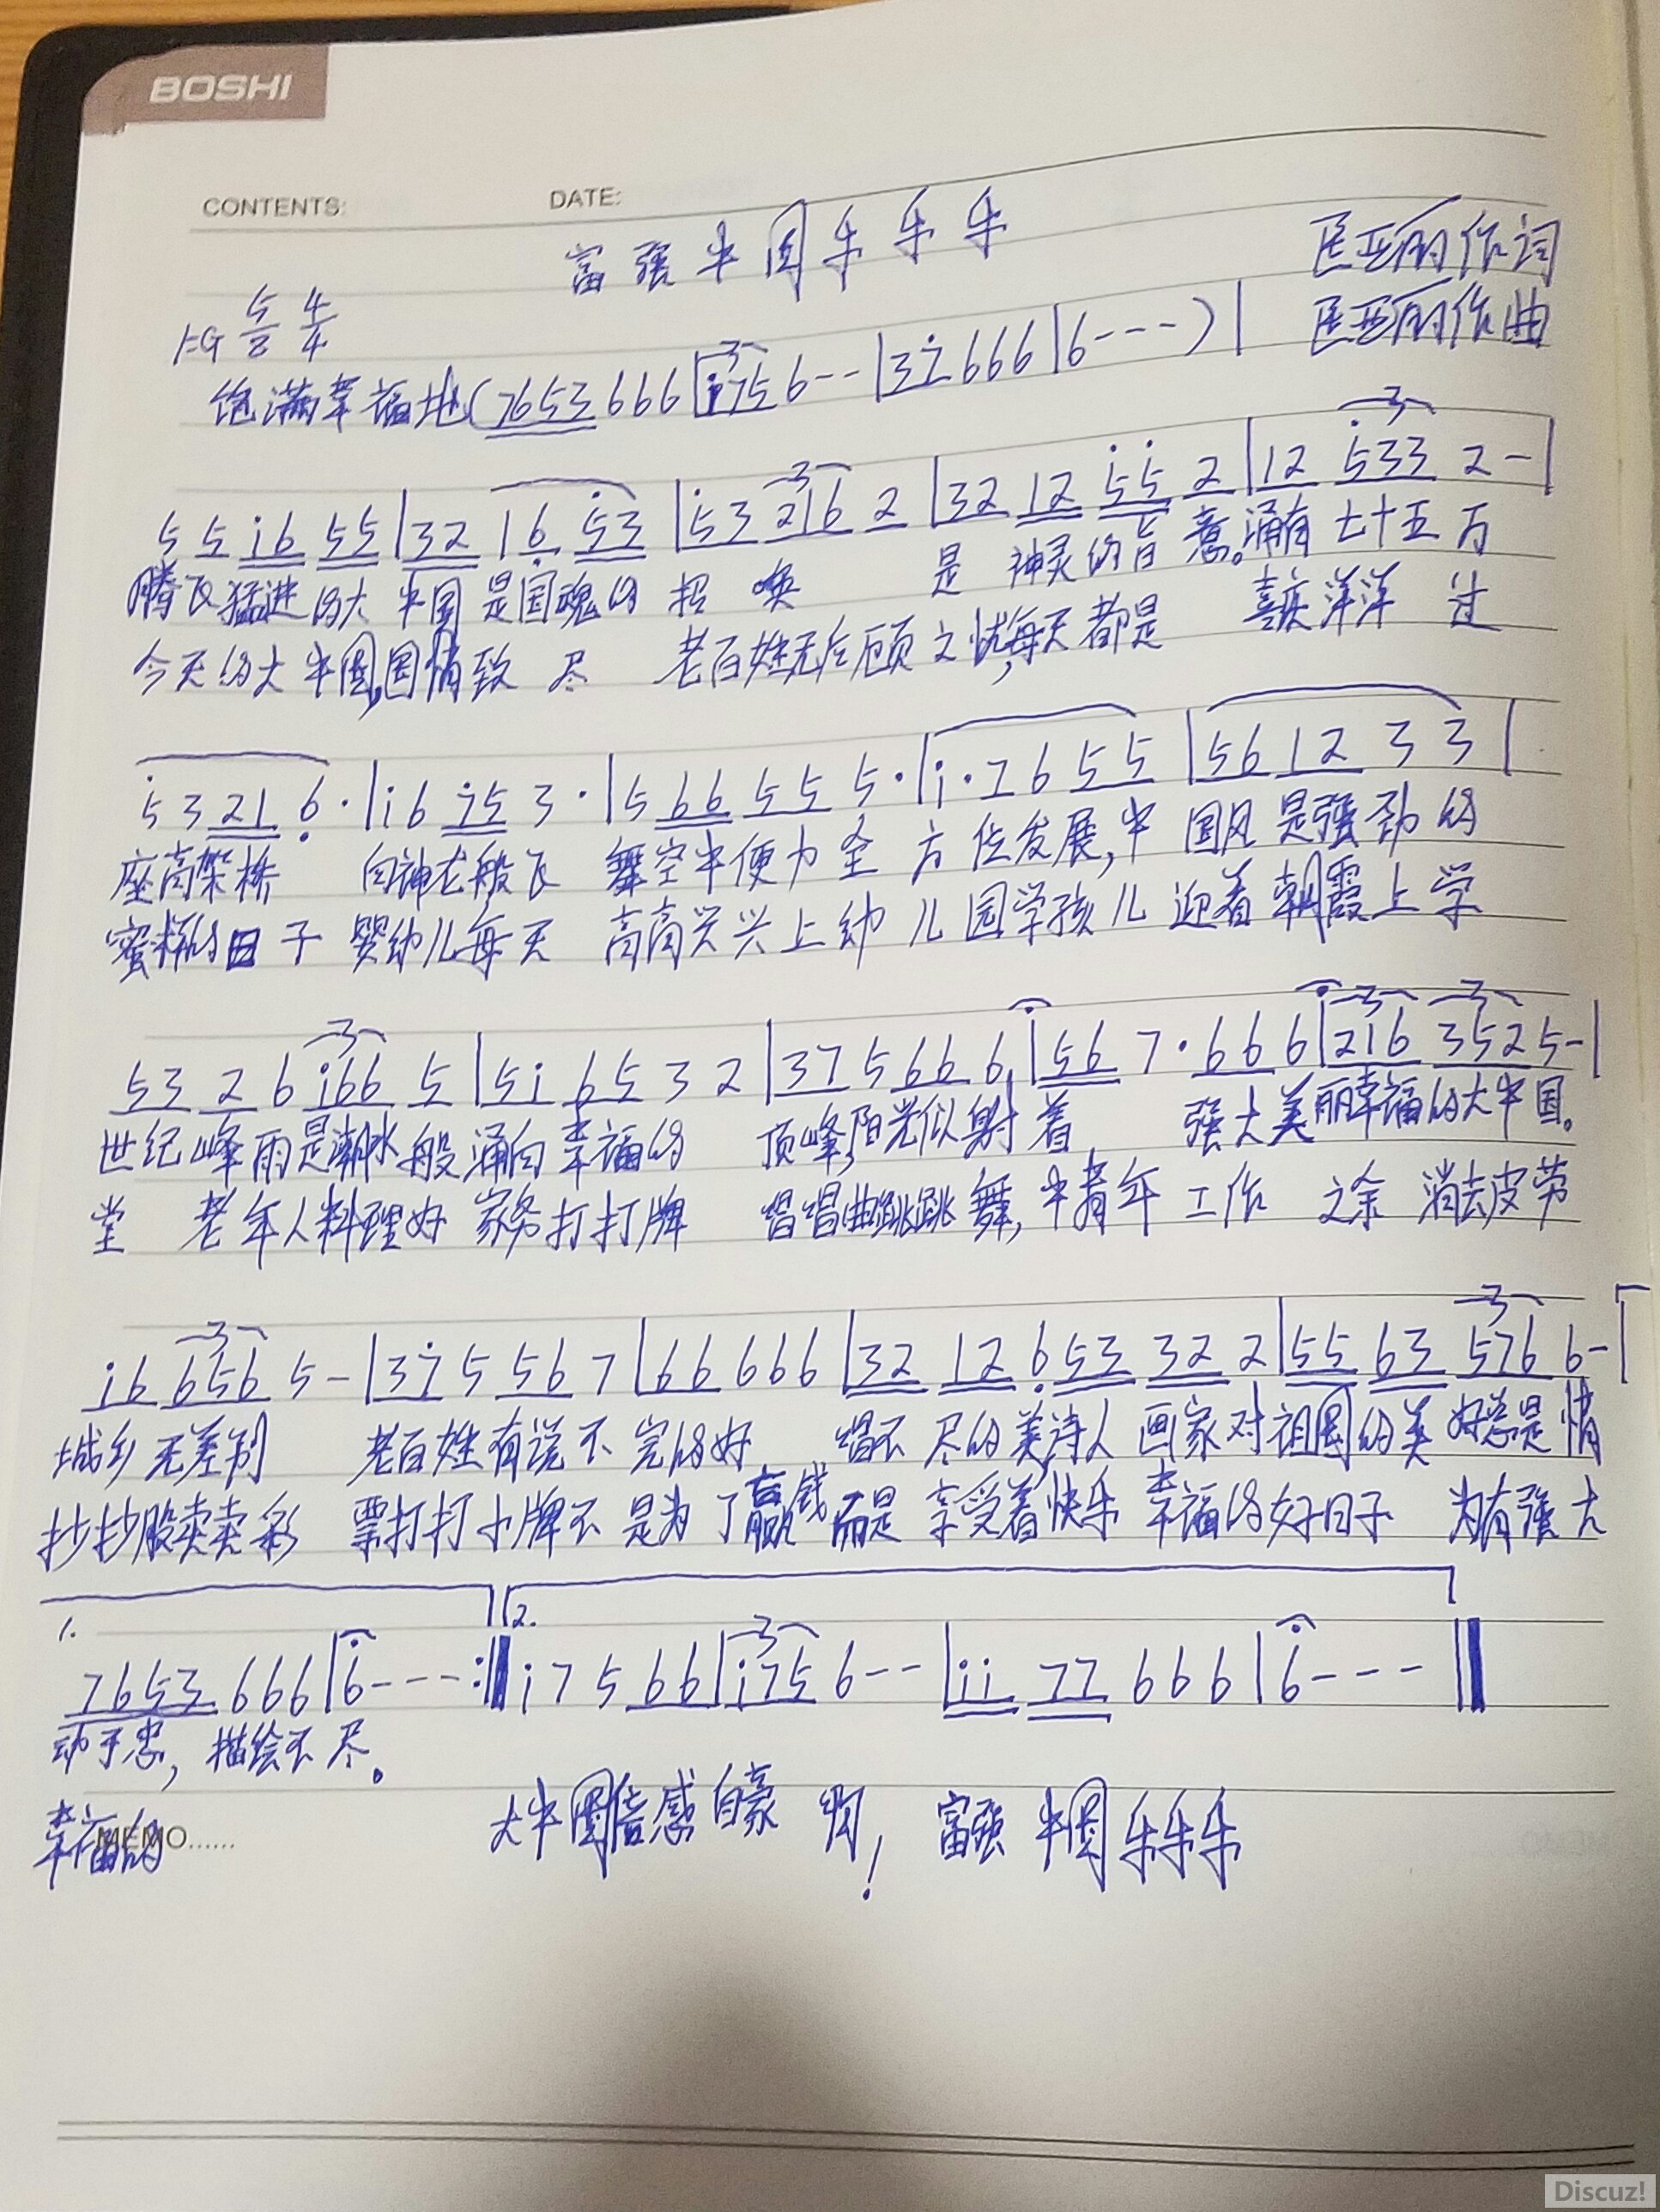 BOSHI
CONTENTS: DATE:
富强中国乐乐乐
匡亚丽作词
1=G 5/8 4/4
匡亚丽作曲
饱满幸福地(7653 666|i75 6--|3i 666|6---)|
5 5 i6 55|32 16 53|53 216 2|32 12 55 2|12 533 2-|
腾飞猛进的大中国是国魂的招唤 是神灵的旨意。涌有七十五万
今天的大中国,国情致尽 老百姓无后顾之忧,每天都是 喜庆洋洋 过
5 3 21 6·|i6 i5 3·|5 66 55 5·|i·7 6 55|56 12 3 3|
座高架桥 向神龙般飞 舞空中便力全方位发展,中国风是强劲的
蜜样的日子 婴幼儿每天 高高兴兴上幼儿园学孩儿迎着朝霞上学
53 2 6 i66 5|5i 65 3 2|37 5 66 6|56 7·66 6|216 352 5-|
世纪峰雨是潮水般涌向幸福的 顶峰,阳光似射着 强大美丽幸福的大中国。
堂 老年人料理好家务打打牌 唱唱曲跳跳舞,中青年工作 之余 消去皮劳
i6 656 5-|3i 5 56 7|66 666|32 12 6 53 32 2|55 63 576 6-|
城乡无差别 老百姓有说不完的好 唱不尽的美,诗人画家对祖国的美好总是情
抄抄股卖卖彩 票打打小牌不是为了赢钱而是享受着快乐幸福的好日子 为有强大
1. 2.
7653 666|6---:‖i 7 5 66|i75 6--|ii 77 666|6---‖
动于忠,描绘不尽。
大中国倍感自豪 哟! 富强中国乐乐乐
幸福的
MEMO......
Discuz!